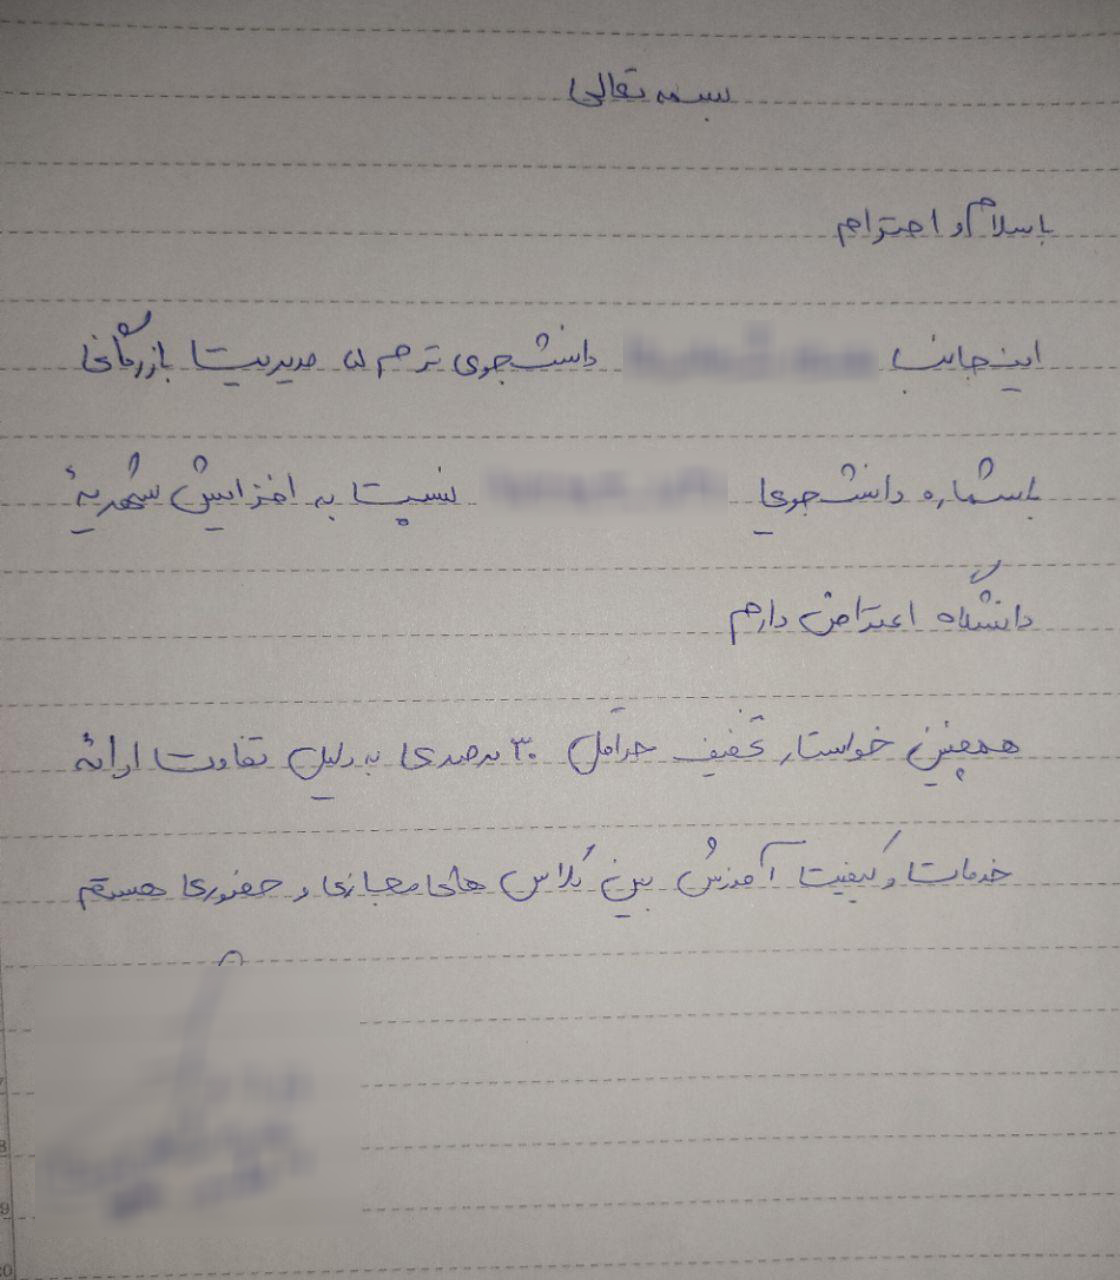 بسمه تعالی
باسلام و احترام
اینجانب دانشجوی ترم ۵ مدیریت بازرگانی
باشماره دانشجویی نسبت به افزایش شهریهٔ
دانشگاه اعتراض دارم
همچنین خواستار تخفیف حداقل ۳۰ درصدی به دلیل تفاوت ارائه
خدمات و کیفیت آموزش بین کلاس های مجازی و حضوری هستم